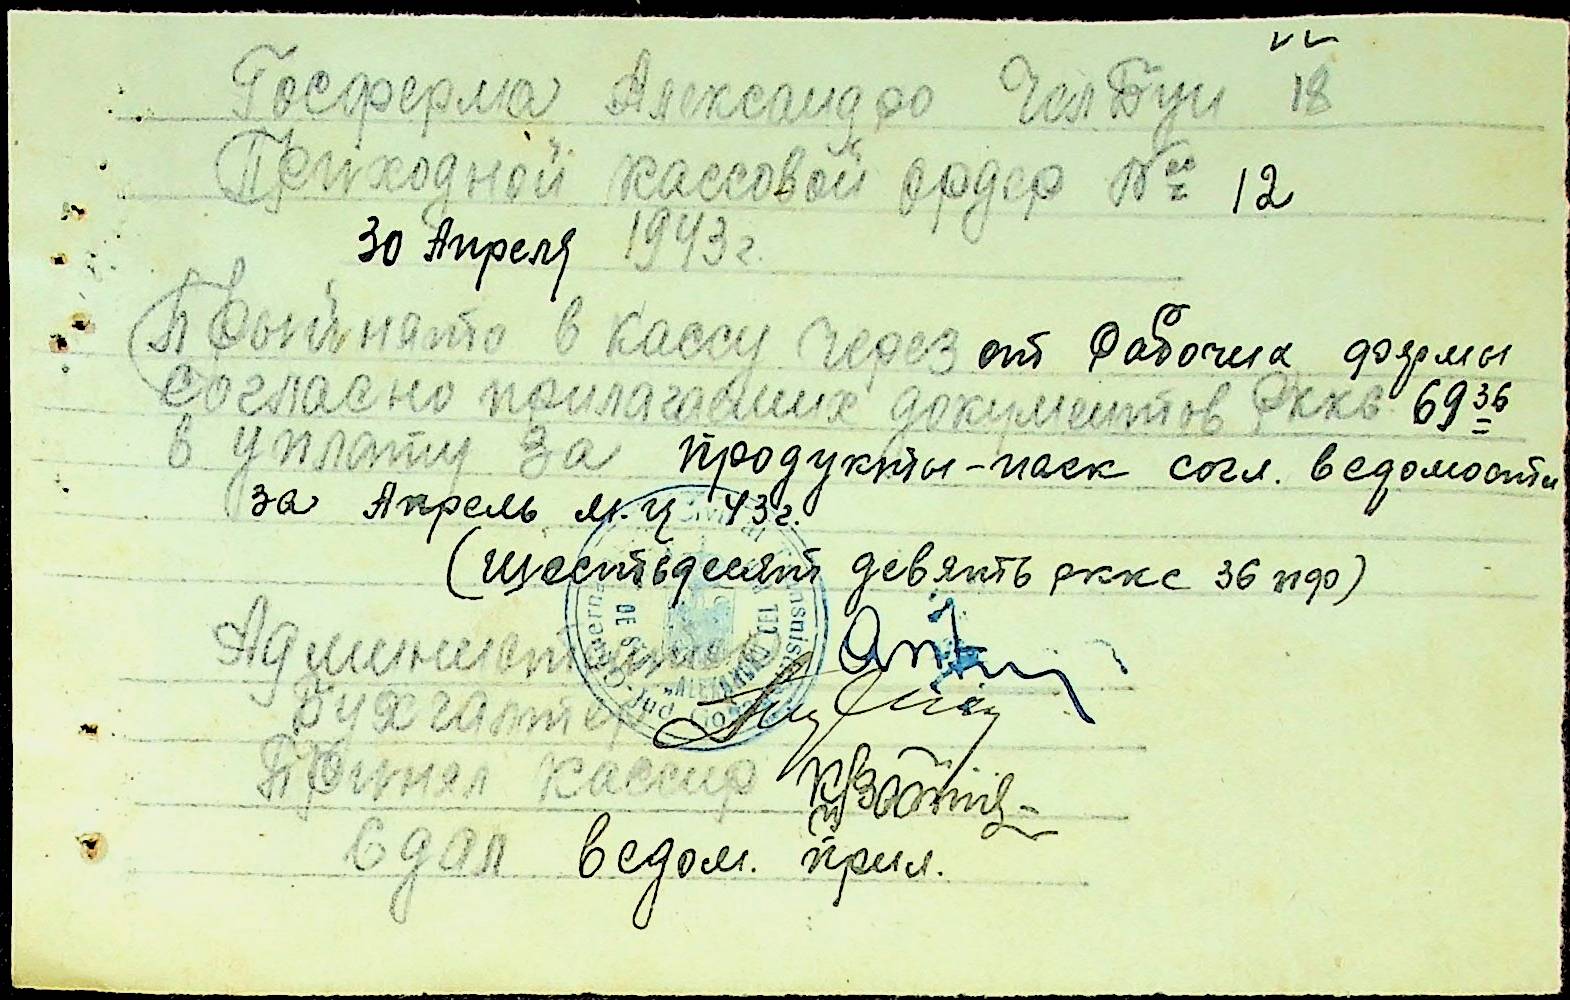 Госферма Александро Чалбуш 18
Приходной кассовой ордер № 12
30 Апреля 1943 г.
Принято в кассу через от Рабочих фермы
согласно прилагаемых документов Рккв 69 36
в уплату за продукты-паек согл. ведомости
за Апрель м.ц 43 г.
(Шестьдесят девять рккс 36 пф)
Администратор
Бухгалтер
Принял кассир
Сдал ведом. прил.